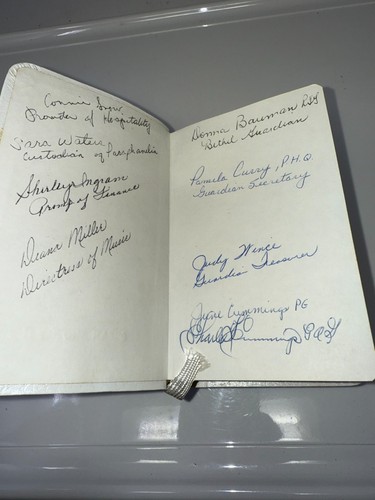 Connie Snow
Provider of Hospitality
Sara Waters
Custodian of Paraphanelia
Shirley Ingram
Promp of Finance
Deana Miller
Directress of Music
Donna Bauman
Bethel Guardian
Pamela Curry, P.H.Q.
Guardian Secretary
Judy Wince
Guardian Treasurer
June Cummings PG
Charles Cummings